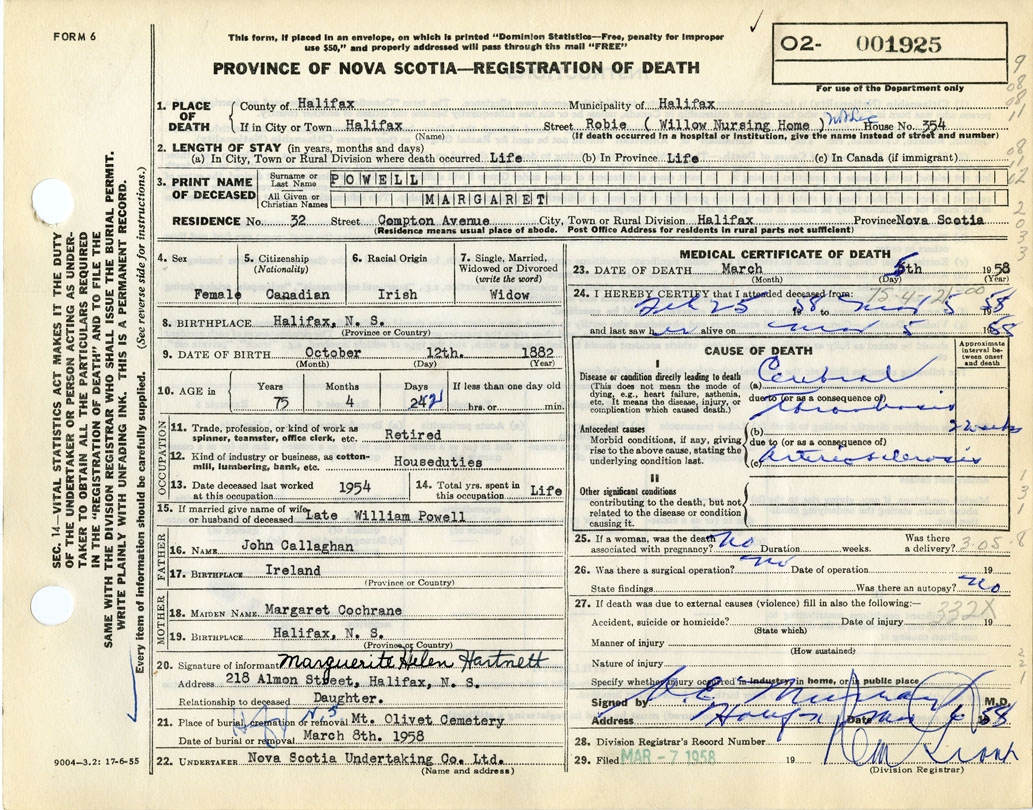 FORM 6
This form, if placed in an envelope, on which is printed "Dominion Statistics—Free, penalty for improper
use $50," and properly addressed will pass through the mail "FREE"
PROVINCE OF NOVA SCOTIA—REGISTRATION OF DEATH
O2- 001925
For use of the Department only
SEC. 14—VITAL STATISTICS ACT MAKES IT THE DUTY
OF THE UNDERTAKER OR PERSON ACTING AS UNDER-
TAKER TO OBTAIN ALL THE PARTICULARS REQUIRED
IN THE "REGISTRATION OF DEATH" AND TO FILE THE
SAME WITH THE DIVISION REGISTRAR WHO SHALL ISSUE THE BURIAL PERMIT.
WRITE PLAINLY WITH UNFADING INK. THIS IS A PERMANENT RECORD.
Every item of information should be carefully supplied. (See reverse side for instructions.)
1. PLACE OF DEATH
County of Halifax Municipality of Halifax
If in City or Town Halifax Street Robie ( Willow Nursing Home ) House No. 354
(Name) (If death occurred in a hospital or institution, give the name instead of street and number)
2. LENGTH OF STAY (in years, months and days)
(a) In City, Town or Rural Division where death occurred Life (b) In Province Life (c) In Canada (if immigrant)
3. PRINT NAME OF DECEASED
Surname or Last Name POWELL
All Given or Christian Names MARGARET
RESIDENCE No. 32 Street Compton Avenue City, Town or Rural Division Halifax Province Nova Scotia
(Residence means usual place of abode. Post Office Address for residents in rural parts not sufficient)
4. Sex
Female
5. Citizenship
(Nationality)
Canadian
6. Racial Origin
Irish
7. Single, Married,
Widowed or Divorced
(write the word)
Widow
8. BIRTHPLACE Halifax, N. S.
(Province or Country)
9. DATE OF BIRTH October 12th. 1882
(Month) (Day) (Year)
10. AGE in
Years Months Days If less than one day old
75 4 24 21 hrs. or min.
OCCUPATION
11. Trade, profession, or kind of work as
spinner, teamster, office clerk, etc. Retired
12. Kind of industry or business, as cotton-
mill, lumbering, bank, etc. Houseduties
13. Date deceased last worked
at this occupation 1954
14. Total yrs. spent in
this occupation Life
15. If married give name of wife
or husband of deceased Late William Powell
FATHER
16. NAME John Callaghan
17. BIRTHPLACE Ireland
(Province or Country)
MOTHER
18. MAIDEN NAME Margaret Cochrane
19. BIRTHPLACE Halifax, N. S.
(Province or Country)
20. Signature of informant Marguerite Helen Hartnett
Address 218 Almon Street, Halifax, N. S.
Relationship to deceased Daughter.
21. Place of burial, cremation or removal Mt. Olivet Cemetery
Date of burial or removal March 8th. 1958
22. UNDERTAKER Nova Scotia Undertaking Co. Ltd.
(Name and address)
9004—3.2: 17-6-55
MEDICAL CERTIFICATE OF DEATH
23. DATE OF DEATH March 5th 1958
(Month) (Day) (Year)
24. I HEREBY CERTIFY that I attended deceased from:
Feb 25 1958 to Mar 5 1958
and last saw her alive on Mar 5 1958
CAUSE OF DEATH
Approximate interval between onset and death
I
Disease or condition directly leading to death
(This does not mean the mode of
dying, e.g., heart failure, asthenia,
etc. It means the disease, injury, or
complication which caused death.)
(a) Cerebral
due to (or as a consequence of)
Thrombosis
Antecedent causes
Morbid conditions, if any, giving
rise to the above cause, stating the
underlying condition last.
(b) 2 weeks
due to (or as a consequence of)
(c) Arteriosclerosis
II
Other significant conditions
contributing to the death, but not
related to the disease or condition
causing it.
25. If a woman, was the death
associated with pregnancy? No Duration weeks. Was there
a delivery?
3-05-8
26. Was there a surgical operation? No Date of operation 19
State findings Was there an autopsy? No
27. If death was due to external causes (violence) fill in also the following:—
332X
Accident, suicide or homicide? Date of injury 19
(State which)
Manner of injury
(How sustained)
Nature of injury
Specify whether injury occurred in industry, in home, or in public place
Signed by M.D.
Address Date Mar 6 1958
28. Division Registrar's Record Number
29. Filed MAR -7 1958 19
(Division Registrar)